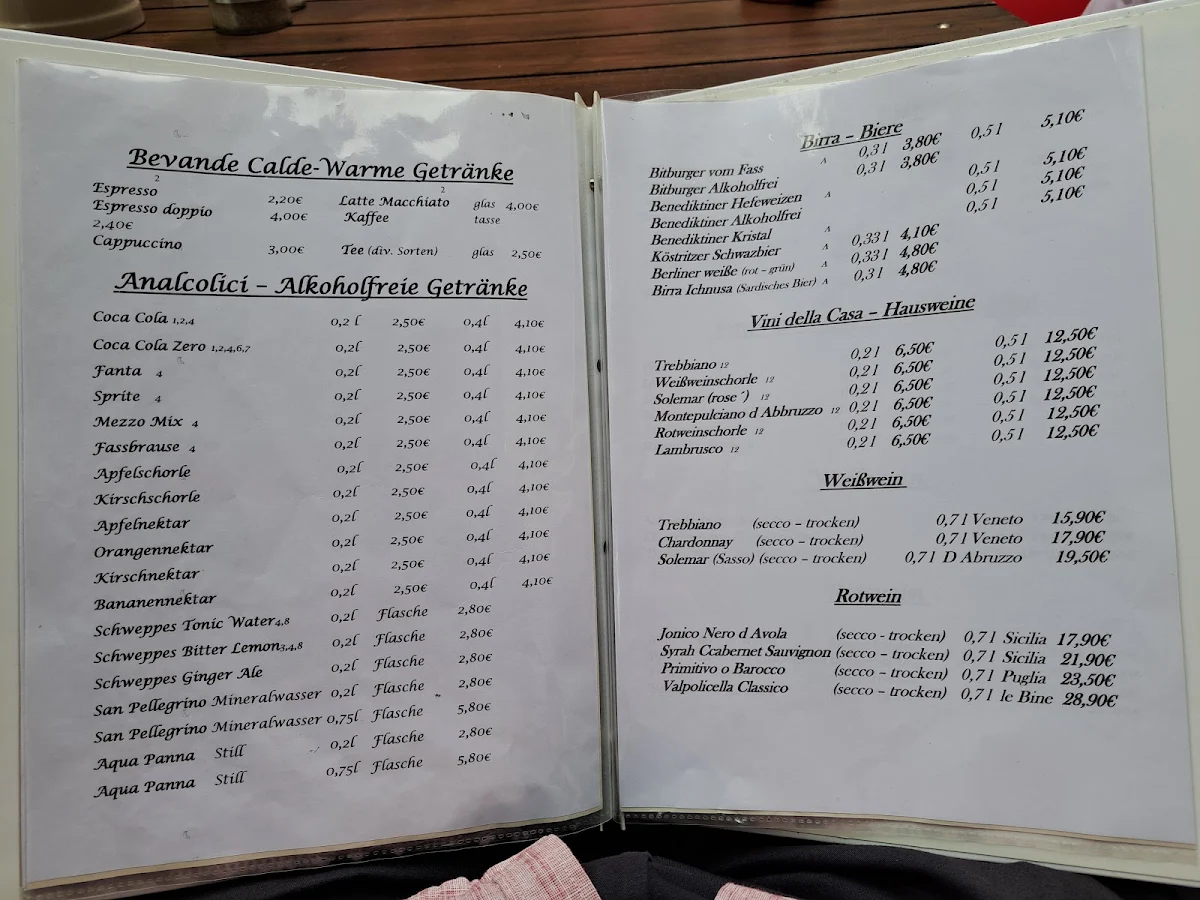 Bevande Calde-Warme Getränke
Espresso 2 2,20€ Latte Macchiato 2 glas 4,00€
Espresso doppio 4,00€ Kaffee tasse
2,40€
Cappuccino 3,00€ Tee (div. Sorten) glas 2,50€
Analcolici – Alkoholfreie Getränke
Coca Cola 1,2,4 0,2 l 2,50€ 0,4l 4,10€
Coca Cola Zero 1,2,4,6,7 0,2l 2,50€ 0,4l 4,10€
Fanta 4 0,2l 2,50€ 0,4l 4,10€
Sprite 4 0,2l 2,50€ 0,4l 4,10€
Mezzo Mix 4 0,2l 2,50€ 0,4l 4,10€
Fassbrause 4 0,2l 2,50€ 0,4l 4,10€
Apfelschorle 0,2l 2,50€ 0,4l 4,10€
Kirschschorle 0,2l 2,50€ 0,4l 4,10€
Apfelnektar 0,2l 2,50€ 0,4l 4,10€
Orangennektar 0,2l 2,50€ 0,4l 4,10€
Kirschnektar 0,2l 2,50€ 0,4l 4,10€
Bananennektar 0,2l 2,50€ 0,4l 4,10€
Schweppes Tonic Water 4,8 0,2l Flasche 2,80€
Schweppes Bitter Lemon 3,4,8 0,2l Flasche 2,80€
Schweppes Ginger Ale 0,2l Flasche 2,80€
San Pellegrino Mineralwasser 0,2l Flasche 2,80€
San Pellegrino Mineralwasser 0,75l Flasche 5,80€
Aqua Panna Still 0,2l Flasche 2,80€
Aqua Panna Still 0,75l Flasche 5,80€
Birra – Biere
Bitburger vom Fass A 0,3 l 3,80€ 0,5 l 5,10€
Bitburger Alkoholfrei 0,3 l 3,80€
Benediktiner Hefeweizen A 0,5 l 5,10€
Benediktiner Alkoholfrei 0,5 l 5,10€
Benediktiner Kristal A 0,5 l 5,10€
Köstritzer Schwazbier A 0,33 l 4,10€
Berliner weiße (rot – grün) A 0,33 l 4,80€
Birra Ichnusa (Sardisches Bier) A 0,3 l 4,80€
Vini della Casa – Hausweine
Trebbiano 12 0,2 l 6,50€ 0,5 l 12,50€
Weißweinschorle 12 0,2 l 6,50€ 0,5 l 12,50€
Solemar (rose´) 12 0,2 l 6,50€ 0,5 l 12,50€
Montepulciano d Abbruzzo 12 0,2 l 6,50€ 0,5 l 12,50€
Rotweinschorle 12 0,2 l 6,50€ 0,5 l 12,50€
Lambrusco 12 0,2 l 6,50€ 0,5 l 12,50€
Weißwein
Trebbiano (secco – trocken) 0,7 l Veneto 15,90€
Chardonnay (secco – trocken) 0,7 l Veneto 17,90€
Solemar (Sasso) (secco – trocken) 0,7 l D Abruzzo 19,50€
Rotwein
Jonico Nero d Avola (secco - trocken) 0,7 l Sicilia 17,90€
Syrah Ccabernet Sauvignon (secco – trocken) 0,7 l Sicilia 21,90€
Primitivo o Barocco (secco – trocken) 0,7 l Puglia 23,50€
Valpolicella Classico (secco – trocken) 0,7 l le Bine 28,90€